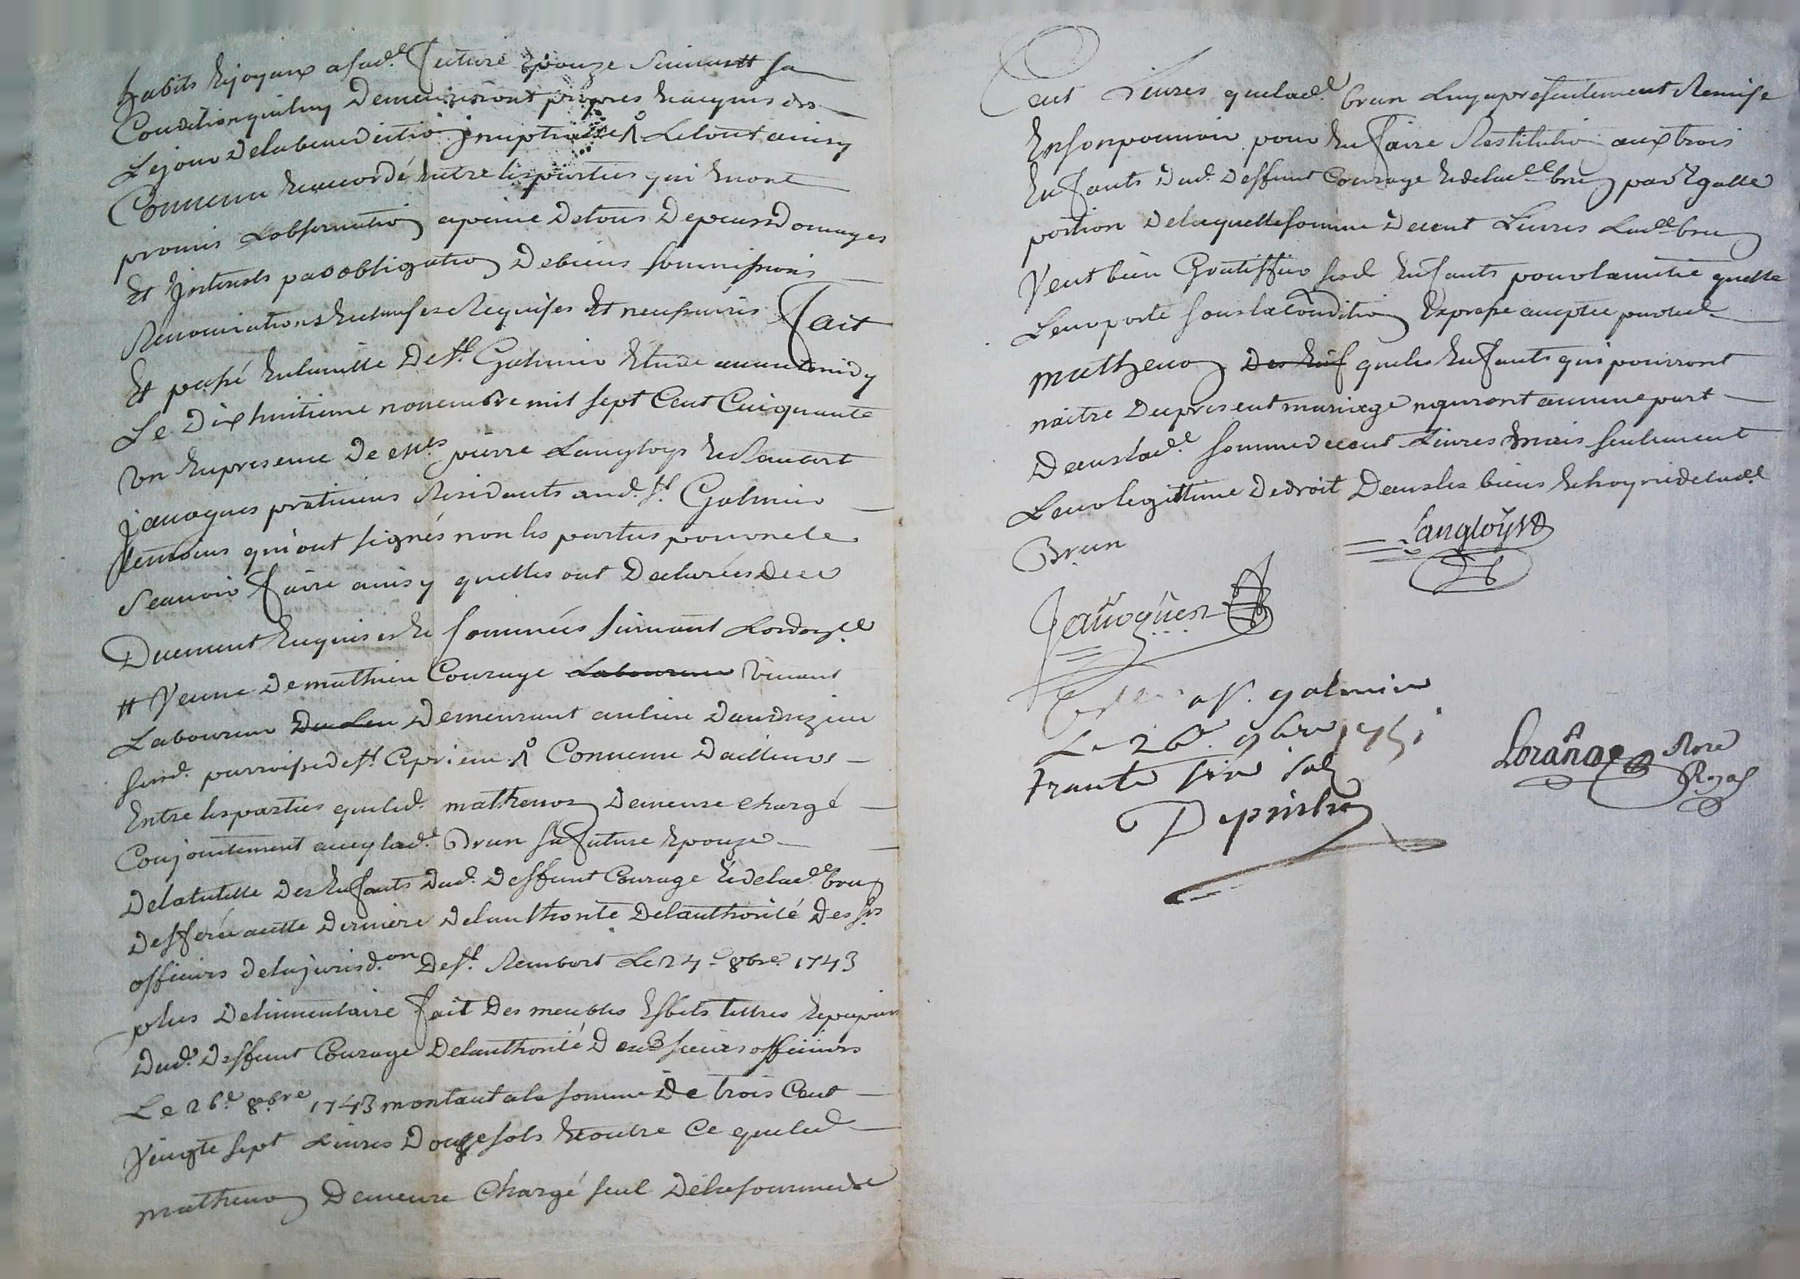 habits et joyaux a sad.e future epouze suivant sa
Condition qui luy Demeureront propres et acquis des
Le jour de la benediction nuptialle Le tout ainsy
Convenu et accordé entre les parties qui en ont
promis Lobservation a peine De tous Depens Domages
Et Interests par obligation De biens soumissions
Renonciations et clauses Requises Et necessaires Fait
Et passé en la ville De st. Galmier Etude avant midy
Le Dix huitieme novembre mil sept Cent Cinquante
Un En presence De mes. pierre Langlois et Rambert
Javogues praticiens Residants aud. st. Galmier
temoins qui ont signés non les parties pour ne le
scavoir faire ainsy quelles ont Declarées De ce
Duement Enquises et sommées suivant Lordon.ce
# Veuve De mathieu Courage Laboureur vivant
Laboureur Du Lieu Demeurant au lieu Dandrezieu
sur d. parroisse de st. Cyprien Convenu Dailleurs
Entre les parties que led. mathevon Demeure chargé
Conjointement avec lad.e Brun sa future Epouze
De la tutelle Des Enfants dud. Deffunt Courage et de lad.e brun
Defferée a cette Derniere De lauthorité De lauthorité Des srs
officiers de la jurisd.on De st. Rambert Le 24e 8bre 1743
plus De linventaire fait Des meubles Effets tittres et papiers
Dud. Deffunt Courage De lauthorité Des sieurs officiers
Le 26e 8bre 1743 montant a la somme De trois Cent
Vingt sept Livres Douze sols Et outre Ce que led.
mathevon Demeure Chargé seul De la somme de
Cent Livres que lad.e brun luy a presentement Remise
En son pouvoir pour En faire Restitution aux trois
Enfants dud. Deffunt Courage et de lad.e brun par Egalle
portion De laquelle somme De cent Livres Lad.e brun
Veut bien Gratiffier sesd. Enfants pour lamitié quelle
Leur porte sous la Condition Expresse acceptée par led.
mathevon que les Enfants qui pourront
naitre Du present mariage nauront aucune part
Dans lad.e somme De cent Livres mais seulement
Leur legittime De droit Dans les biens et hoyrie de lad.e
Brun
Langloys
Javogues
a st. galmier
Le 26e 9bre 1751
trante six sols
Depinhac
Lorange
Nore
Royal